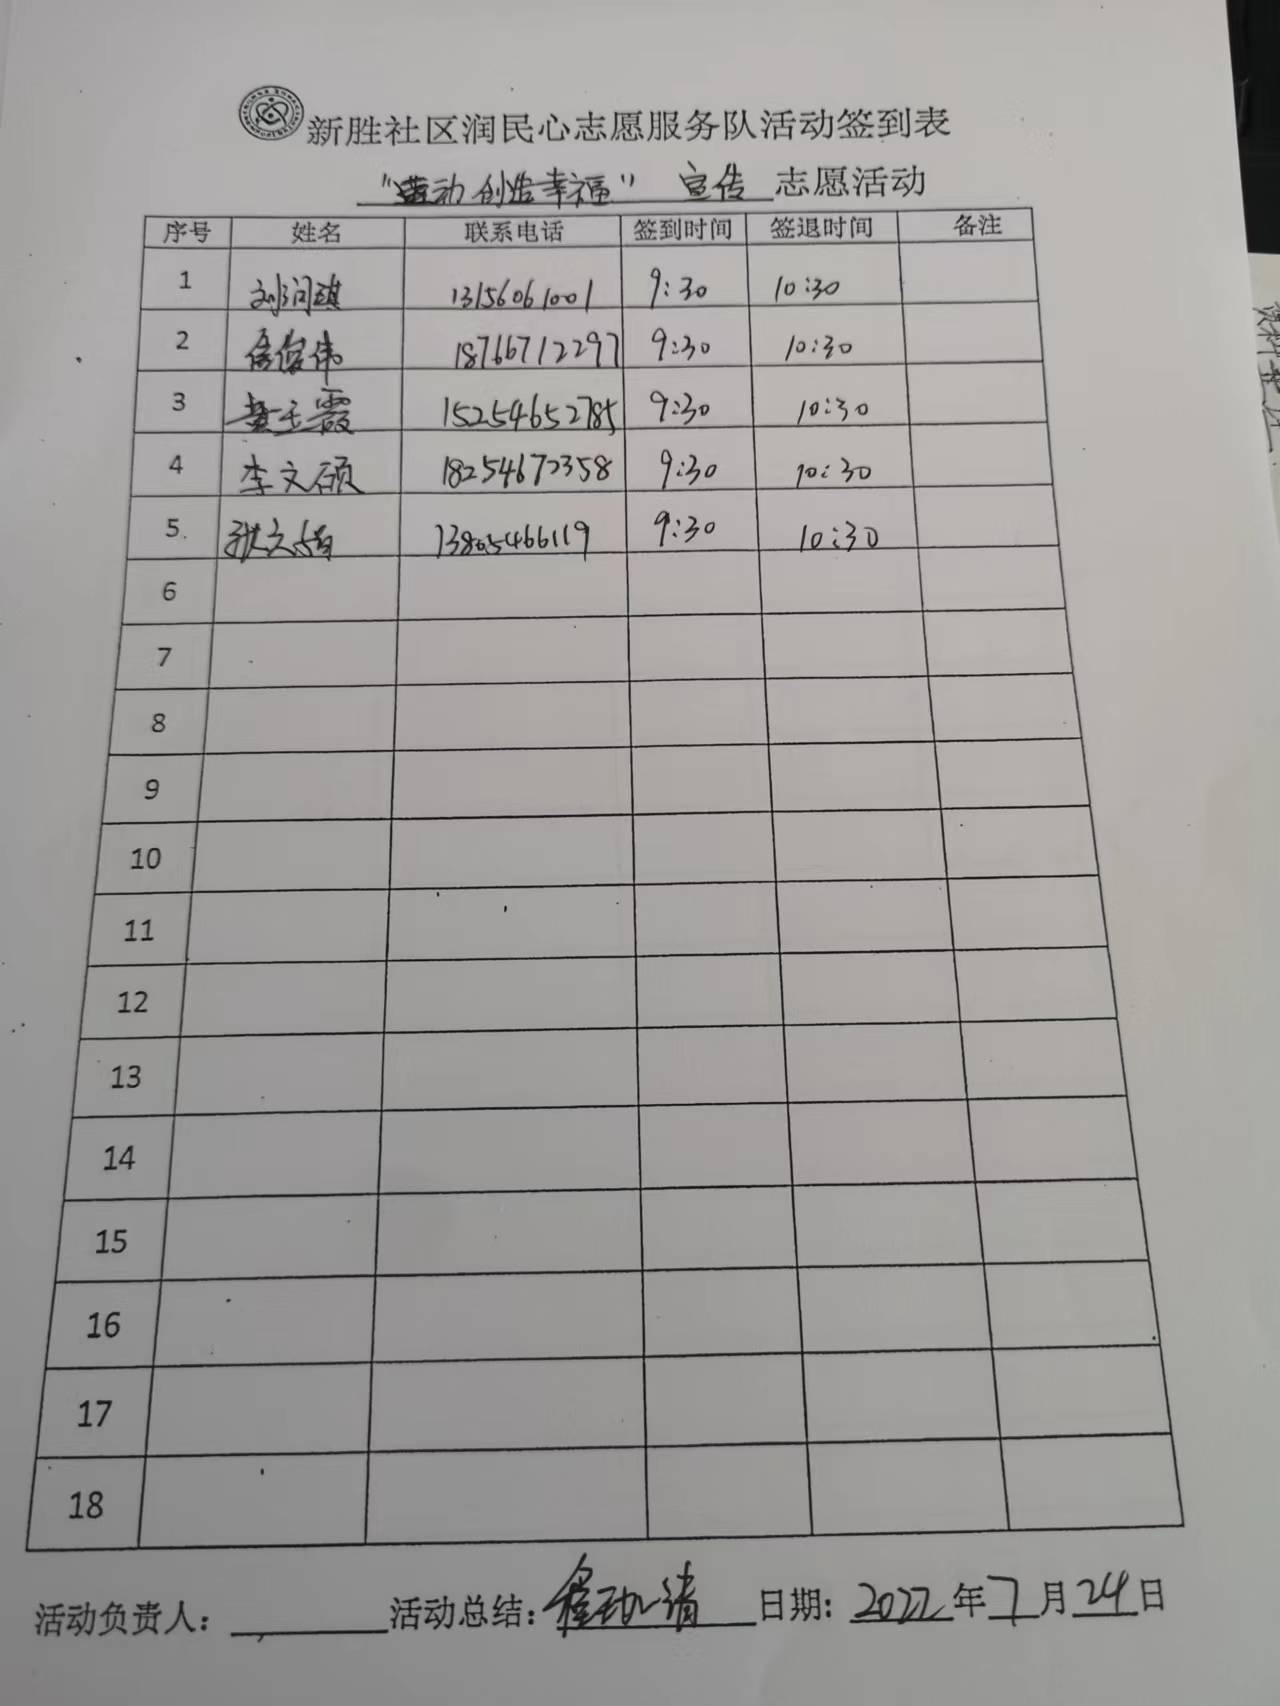 新胜社区润民心志愿服务队活动签到表
"劳动创造幸福" 宣传 志愿活动
序号 姓名 联系电话 签到时间 签退时间 备注
1 刘润琪 13156061001 9:30 10:30
2 俊伟 18766712297 9:30 10:30
3 黄玉霞 15254652785 9:30 10:30
4 李文硕 18254672358 9:30 10:30
5. 张文娟 13805466119 9:30 10:30
6
7
8
9
10
11
12
13
14
15
16
17
18
活动负责人: 活动总结: 日期: 2022年7月24日